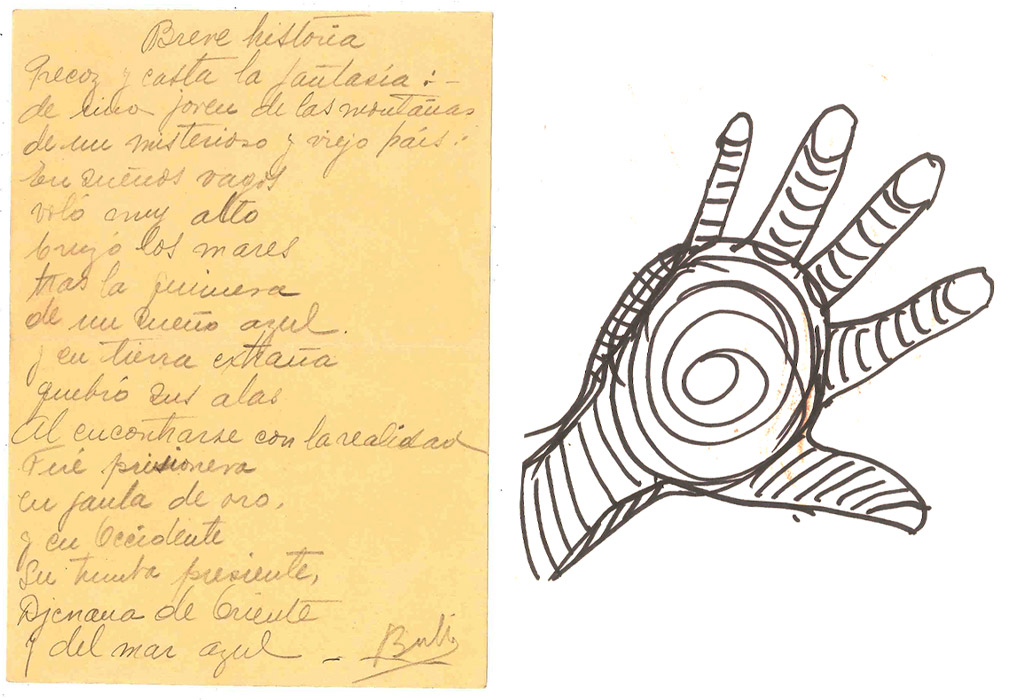 Breve historia
Precoz y casta la fantasía : -
de niño joven de las montañas
de un misterioso y viejo país :
En sueños vagos
voló muy alto
cruzó los mares
tras la quimera
de un sueño azul.
y en tierra extraña
quebró sus alas
Al encontrarse con la realidad
Fué prisionera
en jaula de oro,
y en Occidente
su tumba presiente,
de Oriente
y del mar azul -